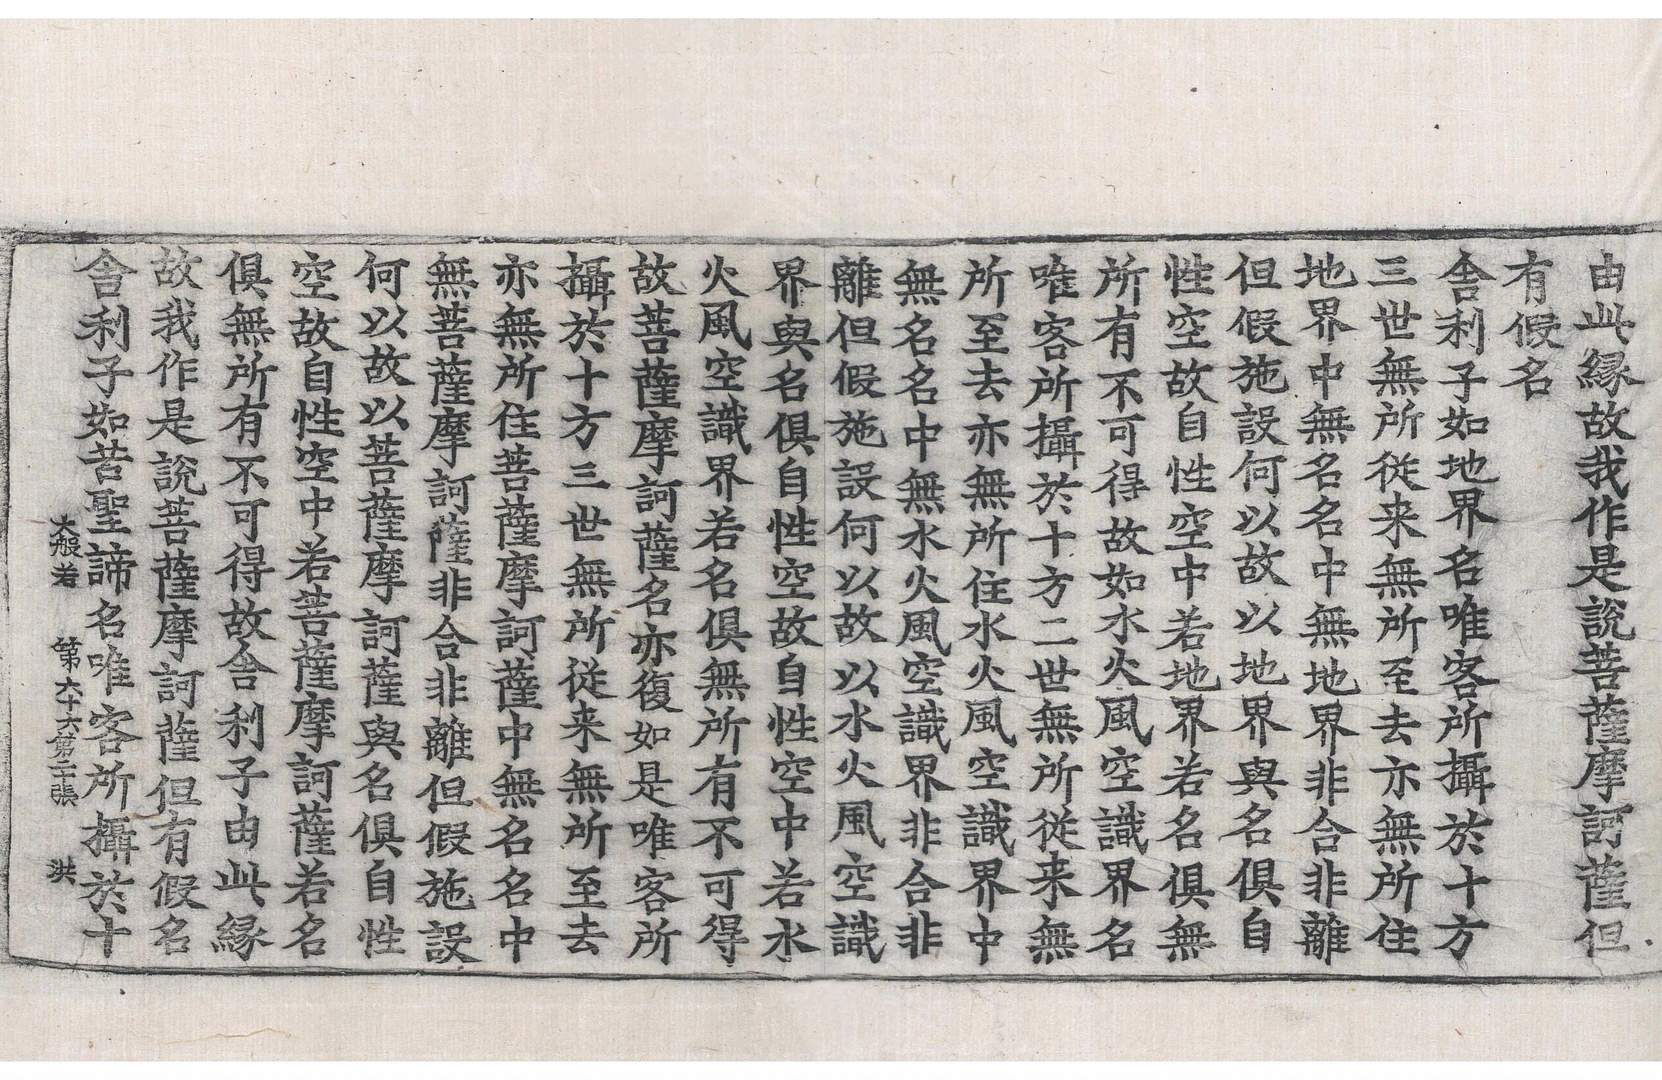 由此縁故我作是說菩薩摩訶薩但
有假名
舍利子如地界名唯客所攝於十方
三世無所從来無所至去亦無所住
地界中無名名中無地界非合非離
但假施設何以故以地界與名俱自
性空故自性空中若地界若名俱無
所有不可得故如水火風空識界名
唯客所攝於十方二世無所從来無
所至去亦無所住水火風空識界中
無名名中無水火風空識界非合非
離但假施設何以故以水火風空識
界與名俱自性空故自性空中若水
火風空識界若名俱無所有不可得
故菩薩摩訶薩名亦復如是唯客所
攝於十方三世無所從来無所至去
亦無所住菩薩摩訶薩中無名名中
無菩薩摩訶薩非合非離但假施設
何以故以菩薩摩訶薩與名俱自性
空故自性空中若菩薩摩訶薩若名
俱無所有不可得故舍利子由此縁
故我作是說菩薩摩訶薩但有假名
舍利子如苦聖諦名唯客所攝於十
大般若 第六十六第二張 洪